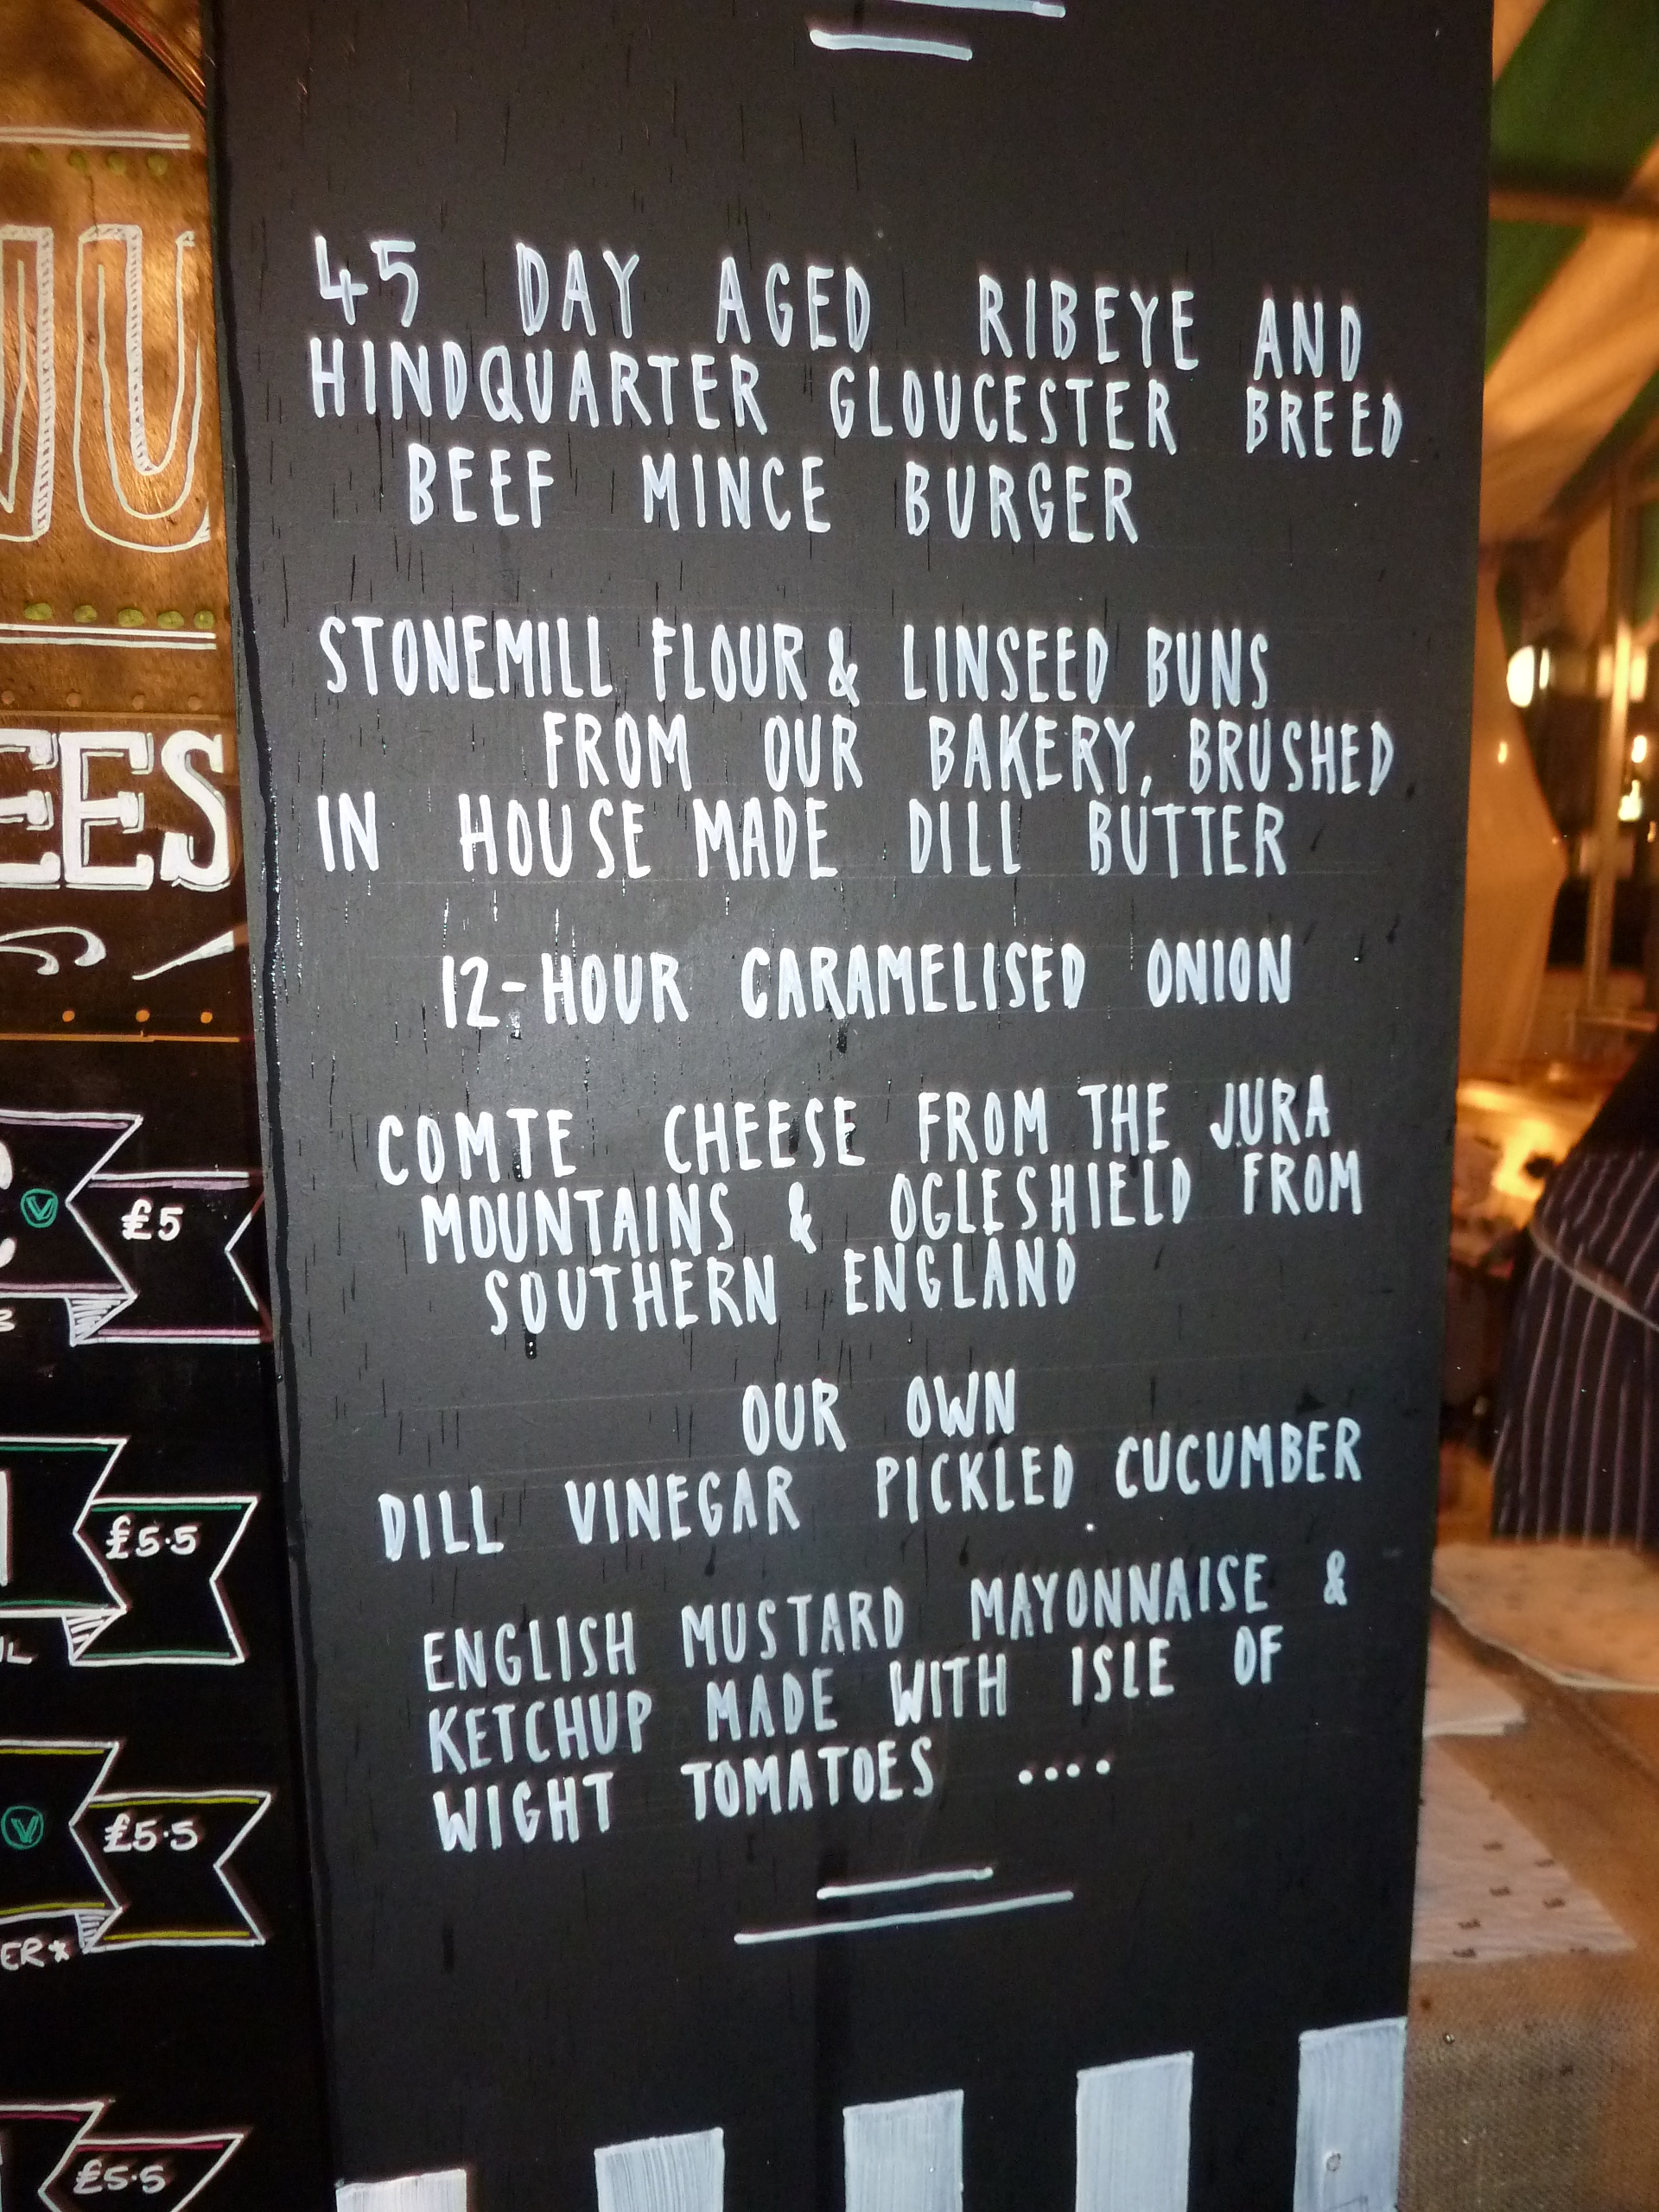 45 DAY AGED RIBEYE AND
HINDQUARTER GLOUCESTER BREED
BEEF MINCE BURGER
STONEMILL FLOUR & LINSEED BUNS
FROM OUR BAKERY, BRUSHED
IN HOUSE MADE DILL BUTTER
12-HOUR CARAMELISED ONION
COMTE CHEESE FROM THE JURA
MOUNTAINS & OGLESHIELD FROM
SOUTHERN ENGLAND
OUR OWN
DILL VINEGAR PICKLED CUCUMBER
ENGLISH MUSTARD MAYONNAISE &
KETCHUP MADE WITH ISLE OF
WIGHT TOMATOES ....
NU
EES
V £5
£5.5
V £5.5
ER*
£5.5